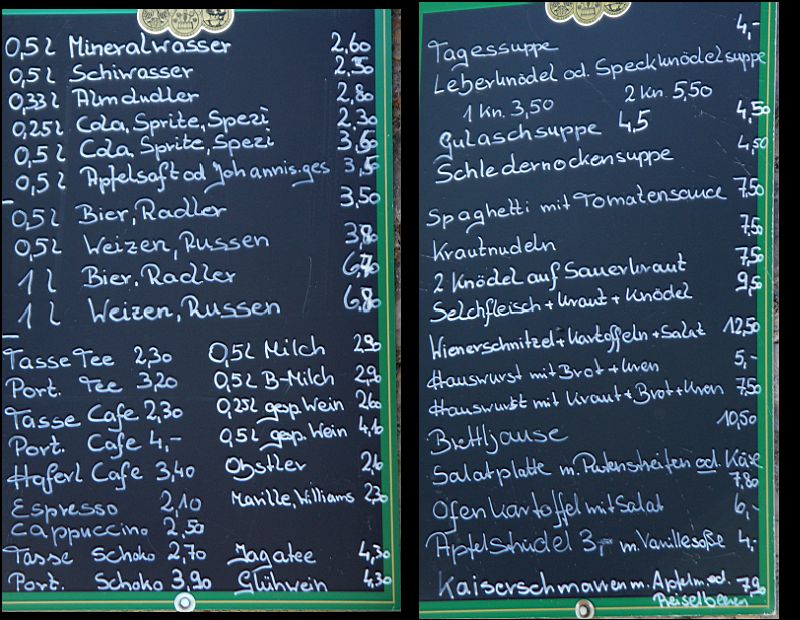 0,5 l Mineralwasser 2,60
0,5 l Schiwasser 2,50
0,33 l Almdudler 2,80
0,25 l Cola, Sprite, Spezi 2,30
0,5 l Cola, Sprite, Spezi 3,60
0,5 l Apfelsaft od Johannis.ges
0,5 l Bier, Radler 3,50
0,5 l Weizen, Russen
1 l Bier, Radler
1 l Weizen, Russen 6,80
Tasse Tee 2,30
Port. Tee 3,20
Tasse Cafe 2,30
Port. Cafe 4,-
Haferl Cafe 3,40
Espresso 2,10
Cappuccino 2,50
Tasse Schoko 2,70
Port. Schoko 3,90
0,5 l Milch 2,90
0,5 l B-Milch 2,90
0,25 l gesp. Wein 2,60
0,5 l gesp. Wein 4,10
Obstler
Marille, Williams 2,30
Jagatee 4,30
Glühwein 4,30
Tagessuppe 4,-
Leberknödel od. Speckknödelsuppe
1 Kn. 3,50 2 Kn. 5,50
Gulaschsuppe 4,5 4,50
Schledernockensuppe 4,50
Spaghetti mit Tomatensauce 7,50
Krautnudeln 7,50
2 Knödel auf Sauerkraut 7,50
Selchfleisch + Kraut + Knödel 9,50
Wienerschnitzel + Kartoffeln + Salat 12,50
Hauswurst mit Brot + Kren 5,-
Hauswurst mit Kraut + Brot + Kren 7,50
Brettljause 10,50
Salatplatte m. Putenstreifen od. Käse
7,80
Ofenkartoffel mit Salat 6,-
Apfelstrudel 3,- m. Vanillesoße 4,-
Kaiserschmarren m. Apfelm. od. 7,90
Preiselbeeren